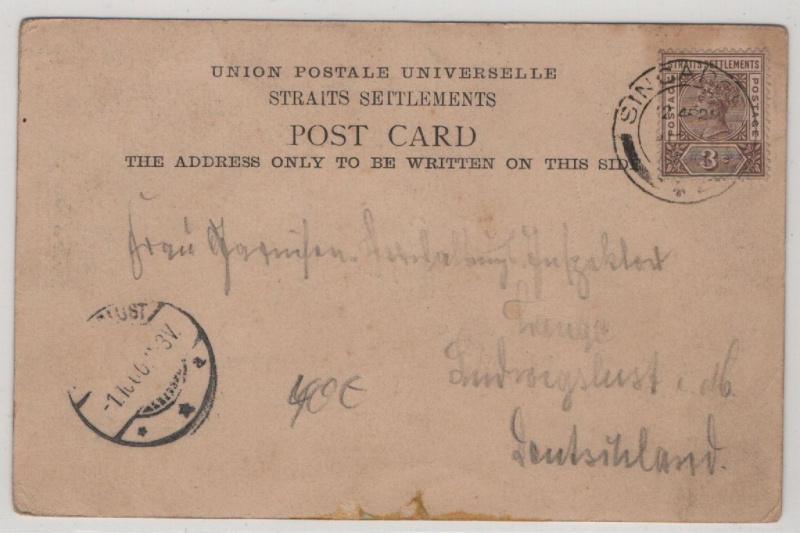 UNION POSTALE UNIVERSELLE
STRAITS SETTLEMENTS
POST CARD
THE ADDRESS ONLY TO BE WRITTEN ON THIS SIDE
STRAITS SETTLEMENTS
POSTAGE
POSTAGE
3
SINGA
Frau Garnison-Verwaltungs-Inspektor
Ludwigslust i. M.
Deutschland.
LUST
a
40 €